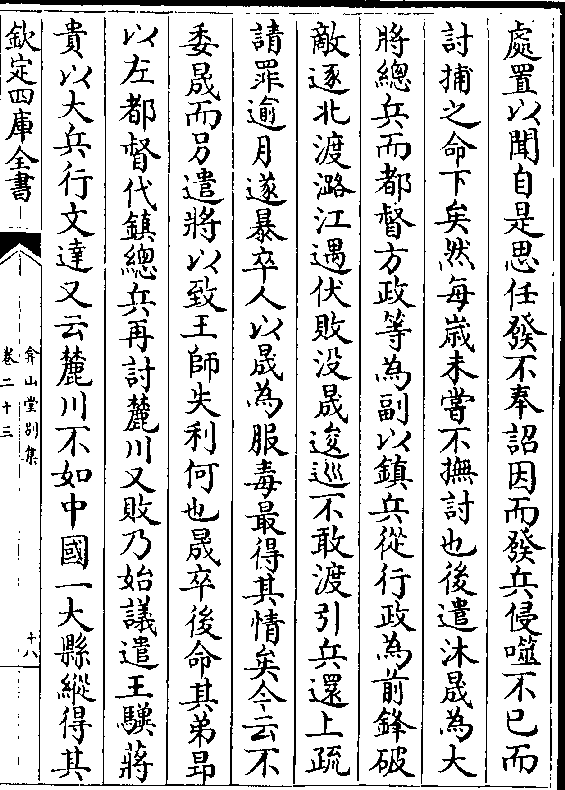 處置以聞自是思任發不奉詔因而發兵侵噬不已而
討捕之命下矣然每嵗未嘗不撫討也後遣沐晟為大
將總兵而都督方政等為副以鎮兵從行政為前鋒破
敵逐北渡潞江遇伏敗没晟逡巡不敢渡引兵還上疏
請罪逾月遂暴卒人以晟為服毒最得其情矣今云不
委晟而另遣將以致王師失利何也晟卒後命其弟昻
以左都督代鎮總兵再討麓川又敗乃始議遣王驥蔣
貴以大兵行文達又云麓川不如中國一大縣縱得其
欽定四庫全書
弇山堂别集
卷二十三
十八